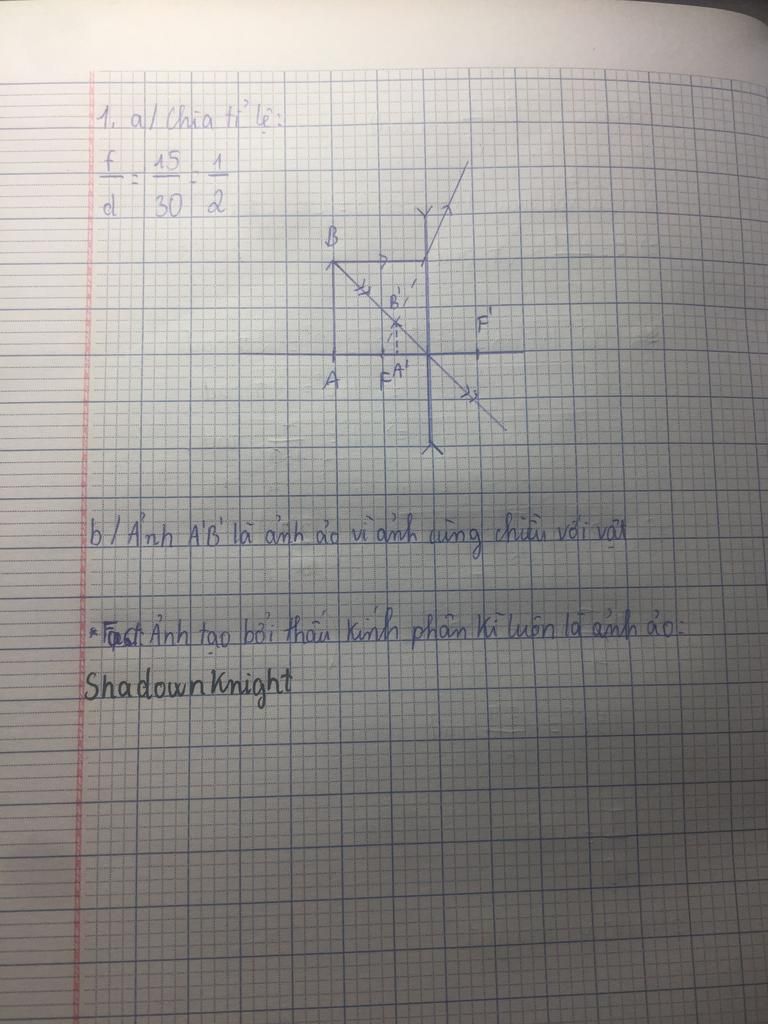 1. a/ Chia tỉ lệ:
f/d = 15/30 = 1/2
B
B'
F'
A
F
A'
b/ Ảnh A'B' là ảnh ảo vì ảnh cùng chiều với vật
* Fact: Ảnh tạo bởi thấu kính phân kì luôn là ảnh ảo.
ShadownKnight